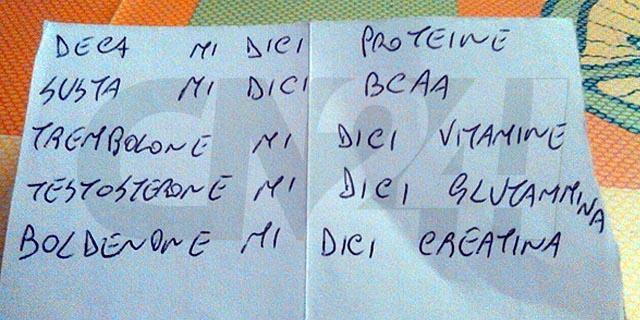 DECA MI DICI PROTEINE
SUSTA MI DICI BCAA
TREMBOLONE MI DICI VITAMINE
TESTOSTERONE MI DICI GLUTAMMINA
BOLDENONE MI DICI CREATINA
CN24